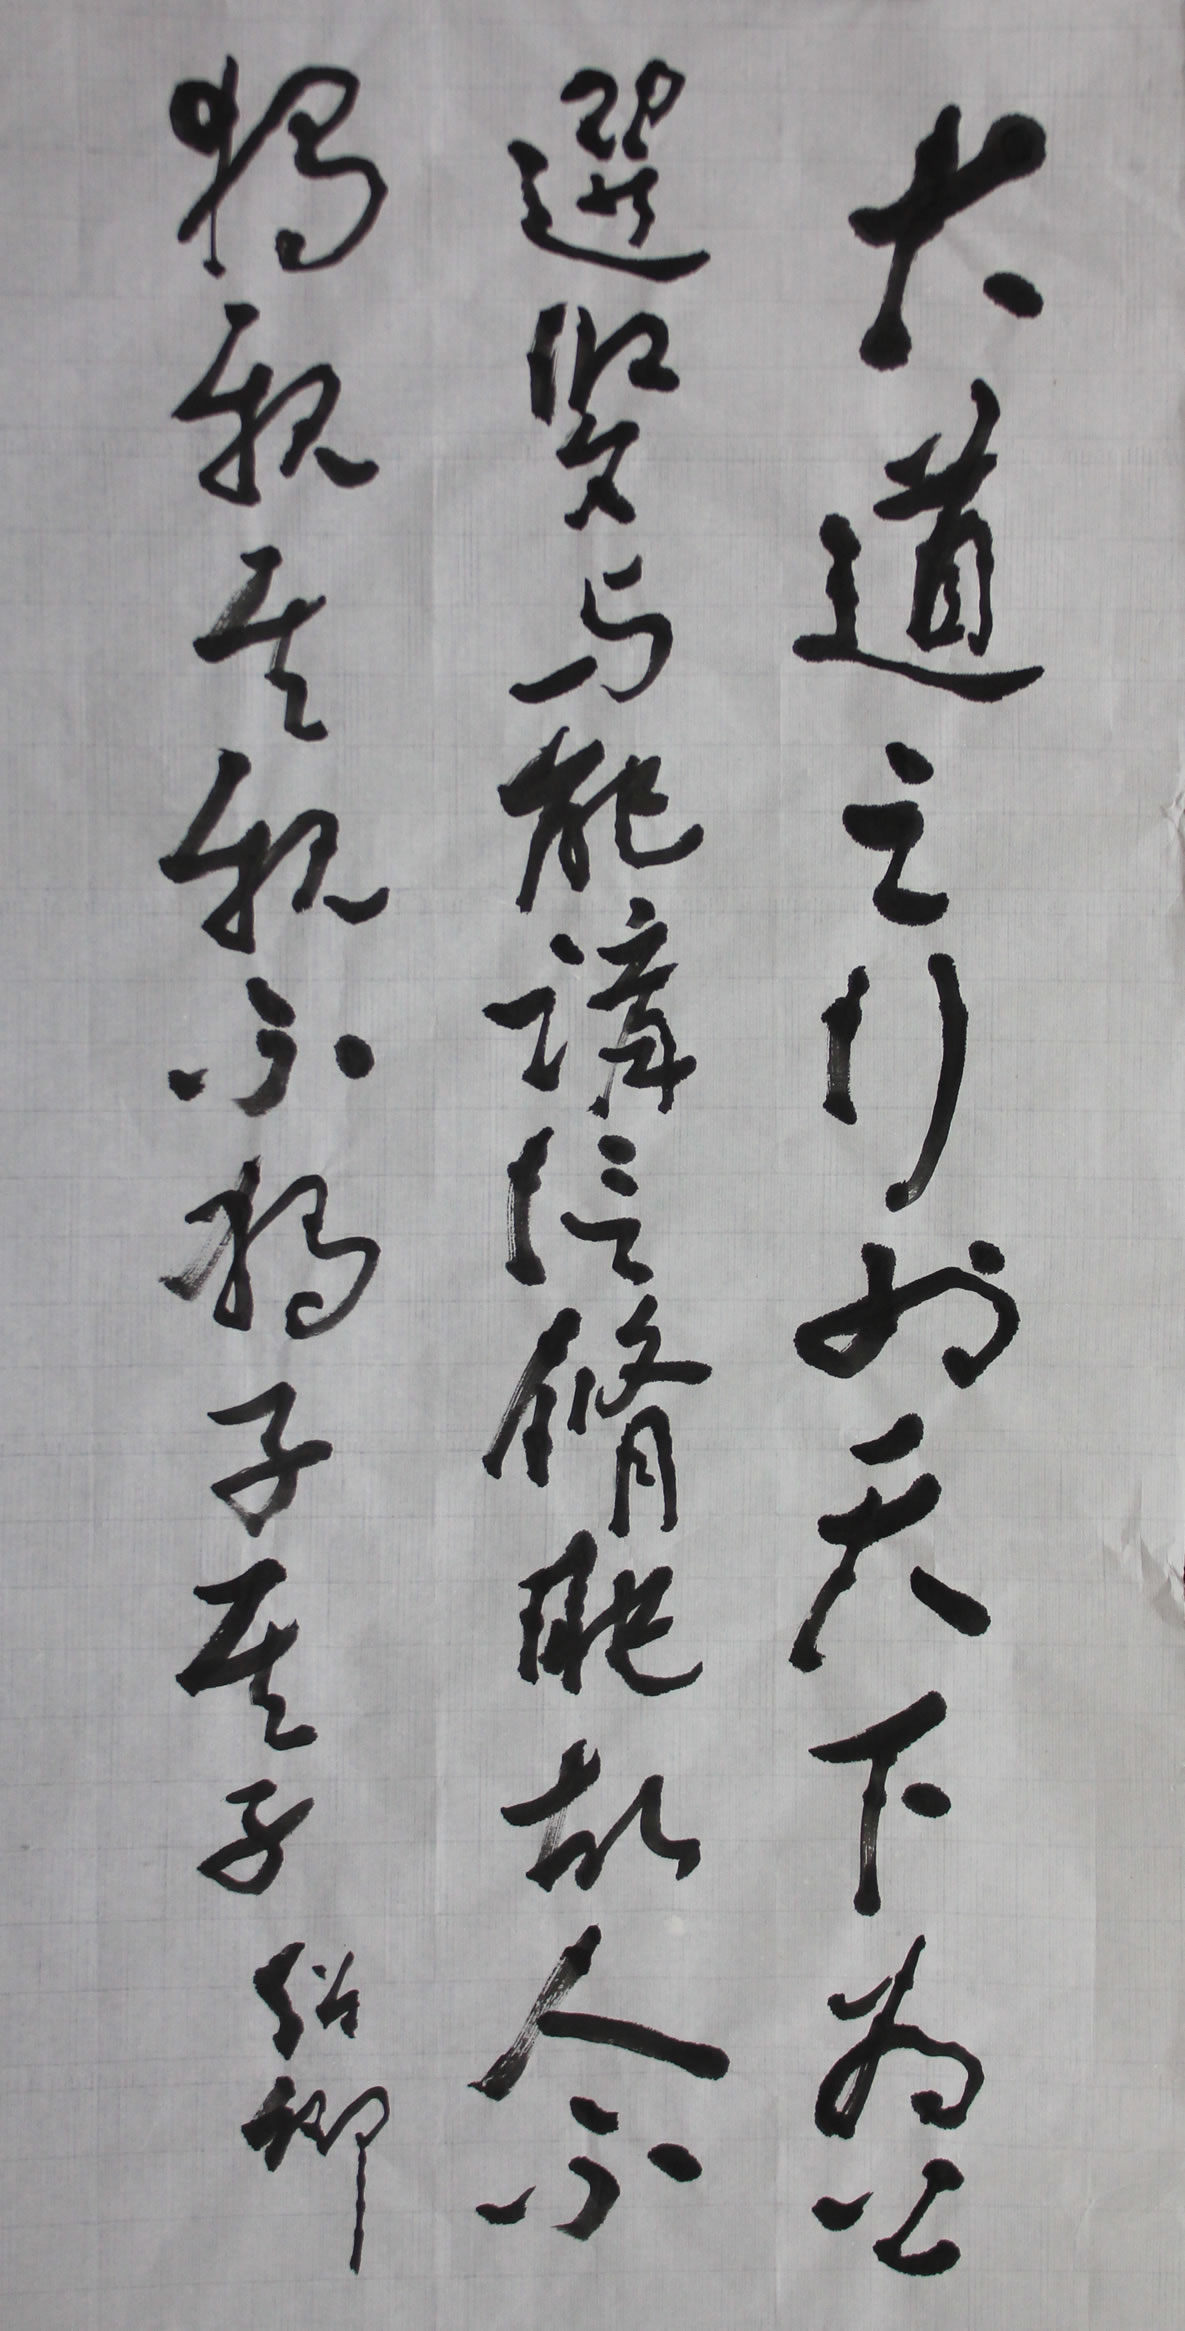 大道之行也天下為公
選賢与能講信脩睦故人不
獨親其親不獨子其子
紹卿